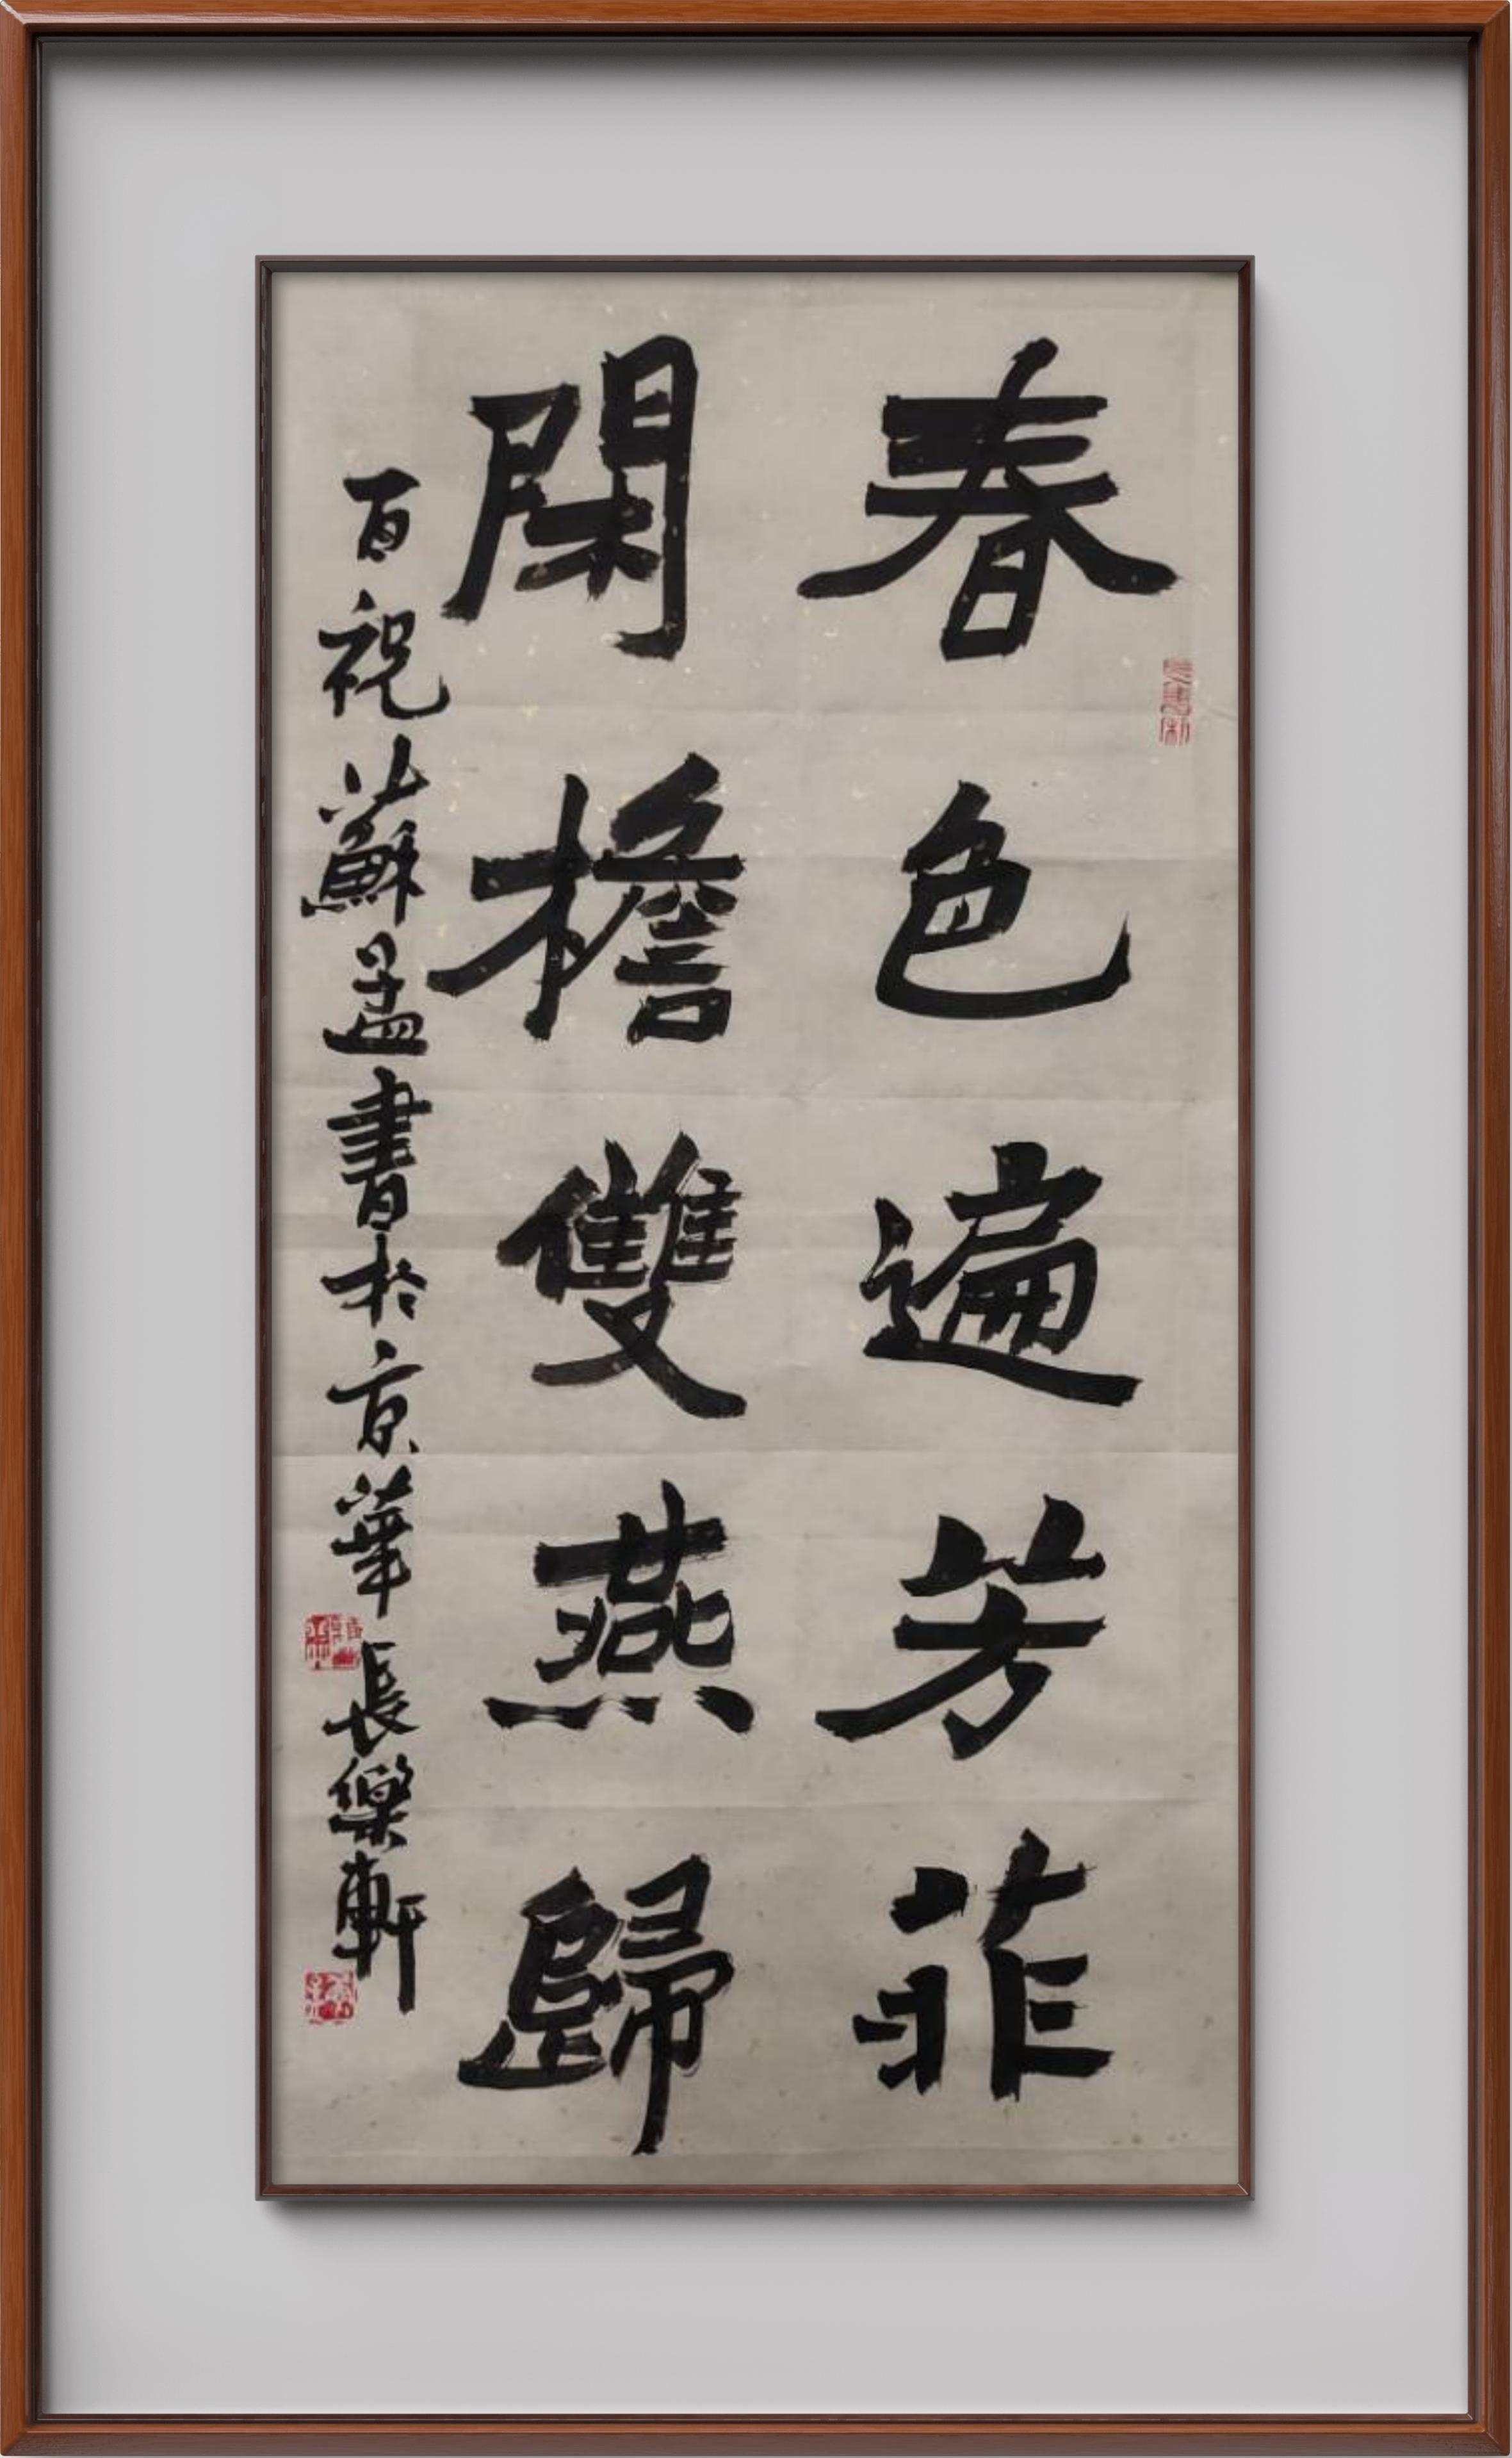 春色遍芳菲
閑檐雙燕歸
百祝蘇孟書於京華長樂軒